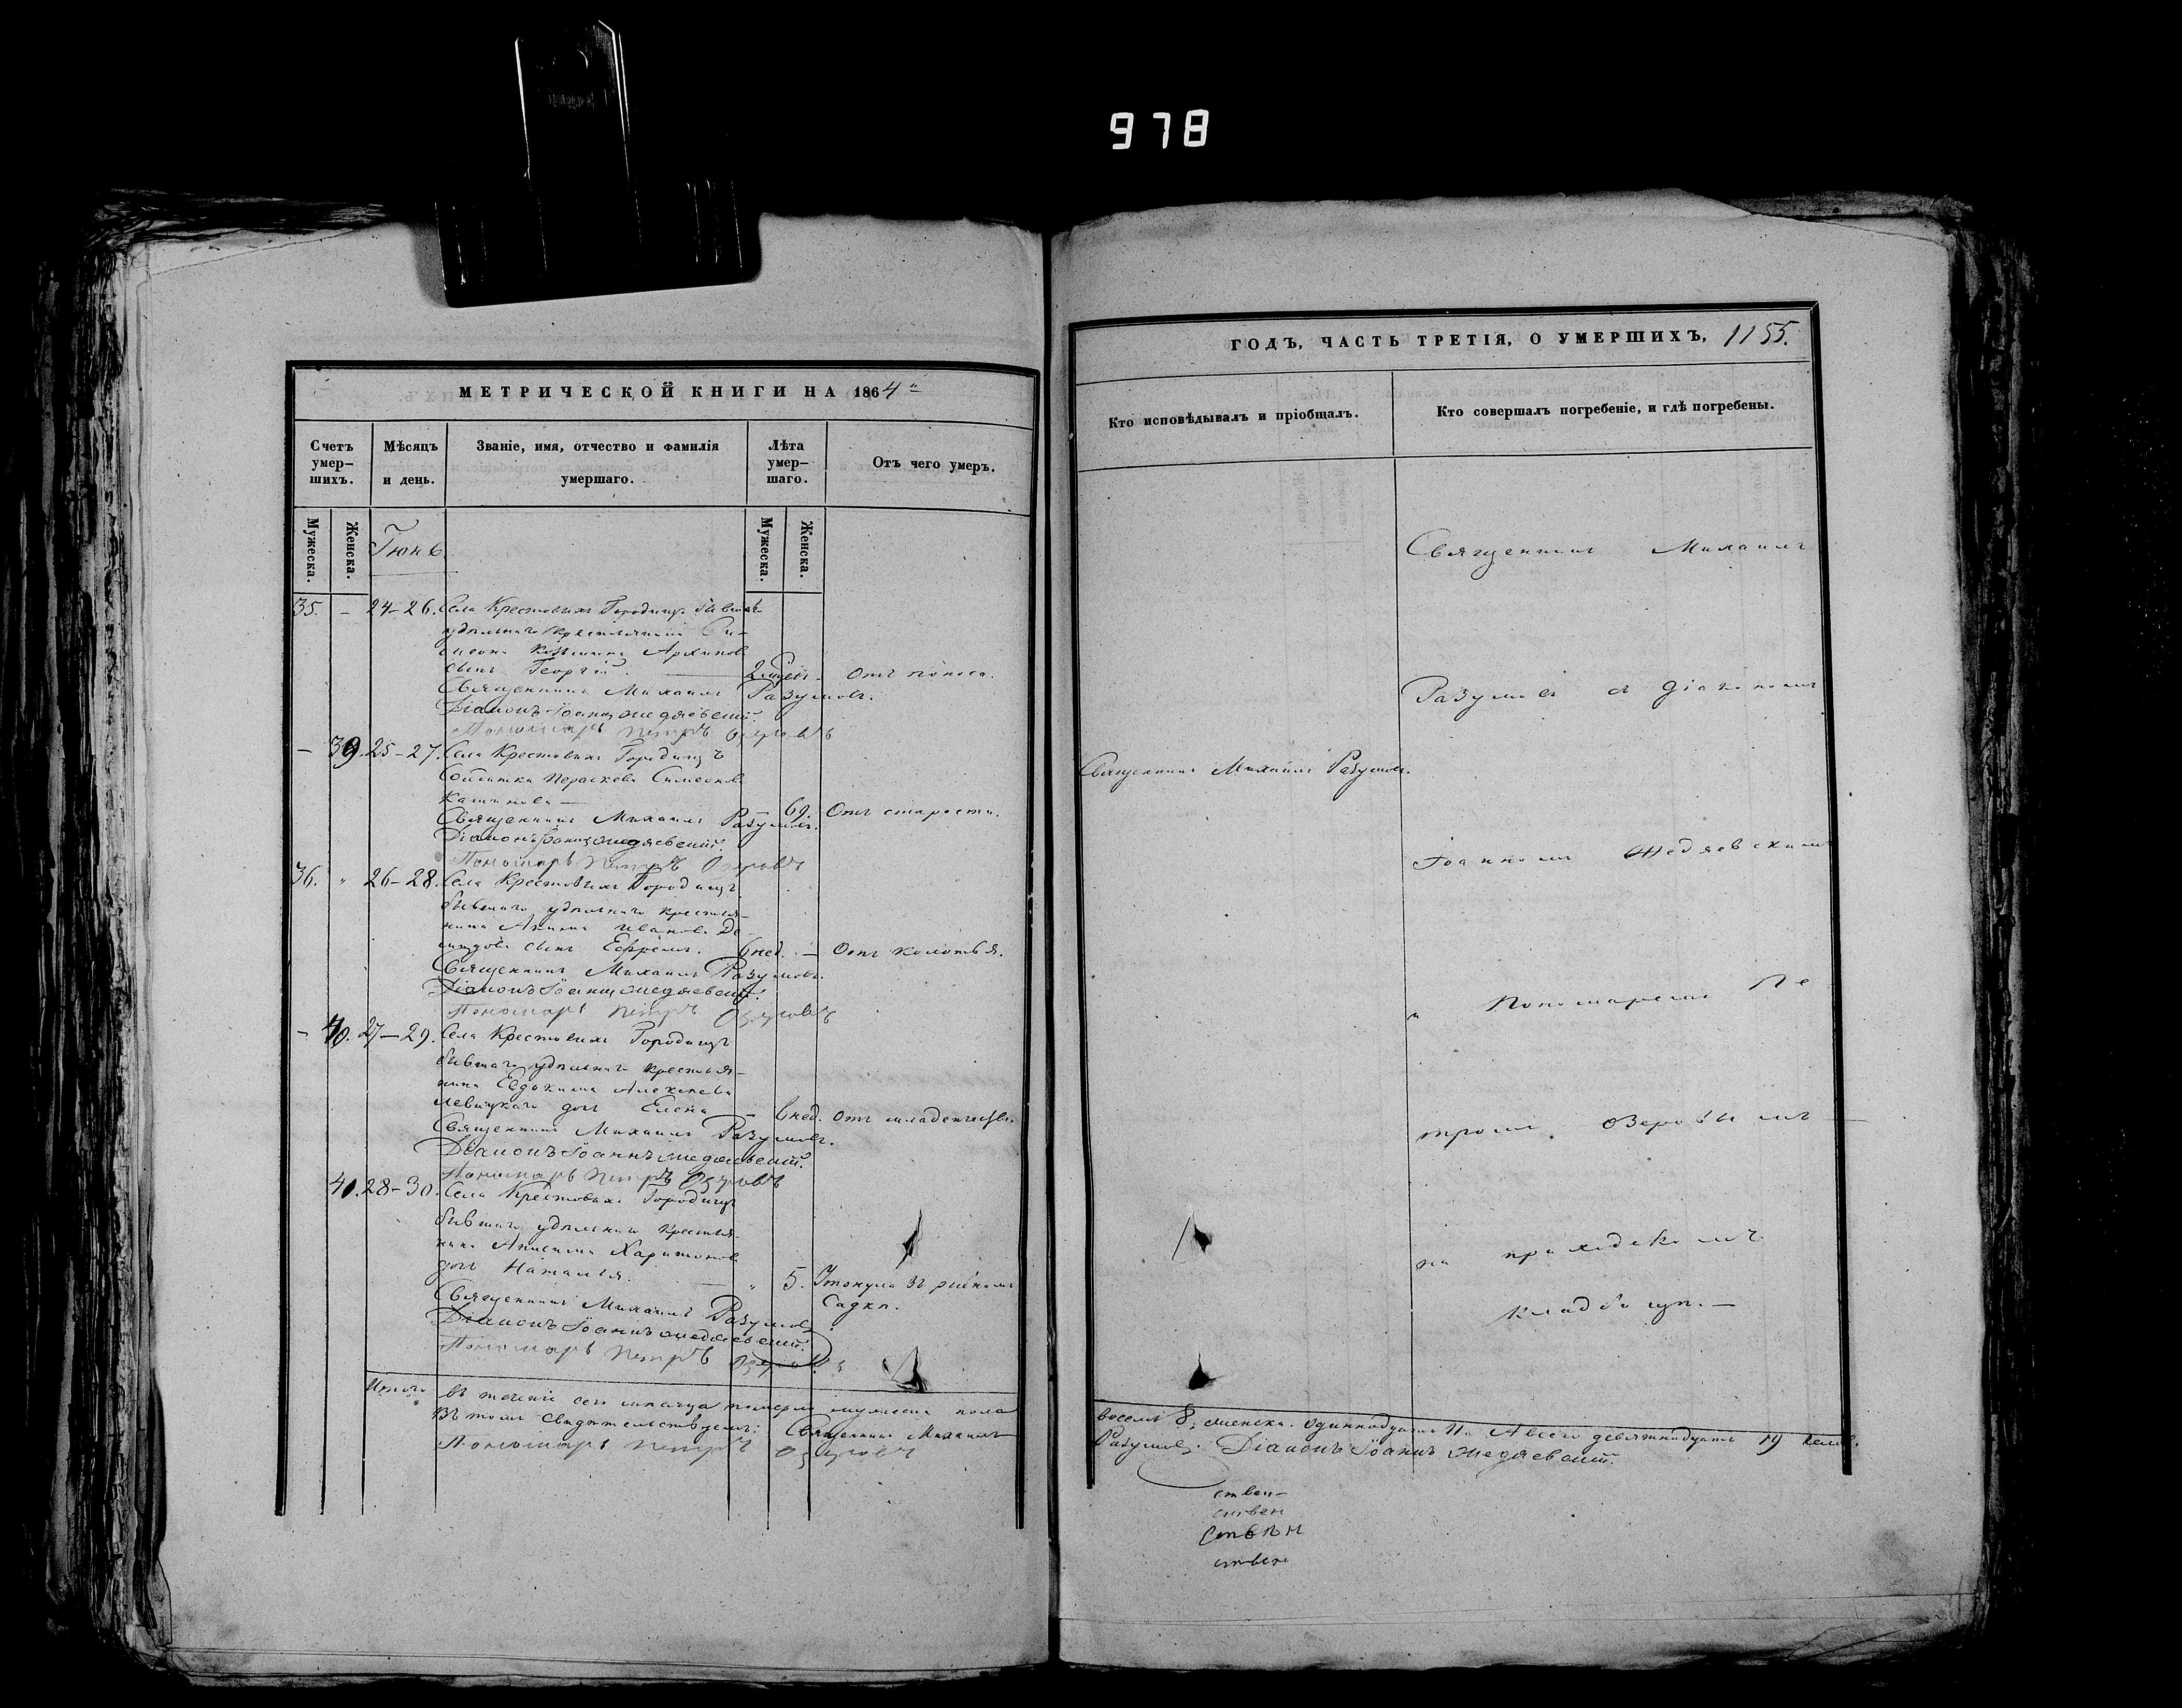 978
МЕТРИЧЕСКОЙ КНИГИ НА 1864
Счетъ умер-шихъ.
Мѣсяцъ и день.
Званіе, имя, отчество и фамилія умершаго.
Лѣта умер-шаго.
Отъ чего умеръ.
Мужеска.
Женска.
Іюнь
Мужеска.
Женска.
35. – 24–26. Села Крестовыхъ Городищъ бывшаго
удѣльнаго крестьянина Си-
меона Козьмина Архипова
сынъ Георгій. Отъ поноса.
Священникъ Михаилъ Разумовъ.
Діаконъ Іоаннъ Жедяевскій.
Пономарь Петръ Озеровъ
– 39. 25–27. Села Крестовыхъ Городищъ
Солдатка Параскева Симеонова
– 69. Отъ старости.
Священникъ Михаилъ Разумовъ.
Діаконъ Іоаннъ Жедяевскій.
Пономарь Петръ Озеровъ
36. " 26–28. Села Крестовыхъ Городищъ
бывшаго удѣльнаго крестья-
нина Иванова Де-
мидова сынъ Ефремъ. 6 нед. – Отъ колотья.
Священникъ Михаилъ Разумовъ.
Діаконъ Іоаннъ Жедяевскій.
Пономарь Петръ Озеровъ
– 40. 27–29. Села Крестовыхъ Городищъ
бывшаго удѣльнаго крестья-
нина Евдокима Алексѣева
Левицкаго дочь Елена – 6 нед. Отъ младенчества.
Священникъ Михаилъ Разумовъ.
Діаконъ Іоаннъ Жедяевскій.
Пономарь Петръ Озеровъ
41. 28–30. Села Крестовыхъ Городищъ
бывшаго удѣльнаго крестья-
нина Анисима Харитонова
дочь Наталья. – " 5. Утонула въ рыбномъ
садкѣ.
Священникъ Михаилъ Разумовъ
Діаконъ Іоаннъ Жедяевскій.
Пономарь Петръ Озеровъ
Итого въ теченіе сего мѣсяца померло мужеска пола
Въ томъ свидѣтельствуемъ: Священникъ Михаилъ
Пономарь Петръ Озеровъ
ГОДЪ, ЧАСТЬ ТРЕТІЯ, О УМЕРШИХЪ, 1155.
Кто исповѣдывалъ и пріобщалъ.
Кто совершалъ погребеніе, и гдѣ погребены.
Священникъ Михаилъ
Разумовъ съ Діакономъ
Священникъ Михаилъ Разумовъ.
Іоанномъ Жедяевскимъ
и Пономаремъ Пе
тромъ Озеровымъ –
на приходскомъ
кладбищѣ. –
восемь 8, женска одиннадцать 11. А всего девятнадцать 19 челов.
Разумовъ. Діаконъ Іоаннъ Жедяевскій.
ствен-
ствен
ствен
ствен